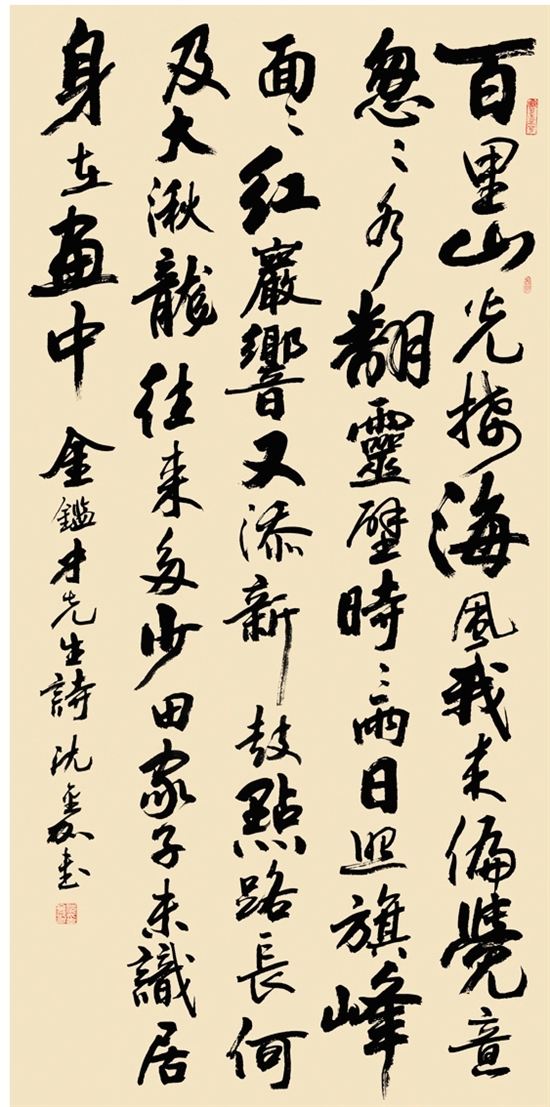 百里山光接海風我来偏覺意
怱〻水翻靈壁時〻雨日照旗峰
面〻紅巖響又添新鼓點路長何
及大湫龍往来多少田家子未識居
身在畫中 金鑑才先生詩 沈 書